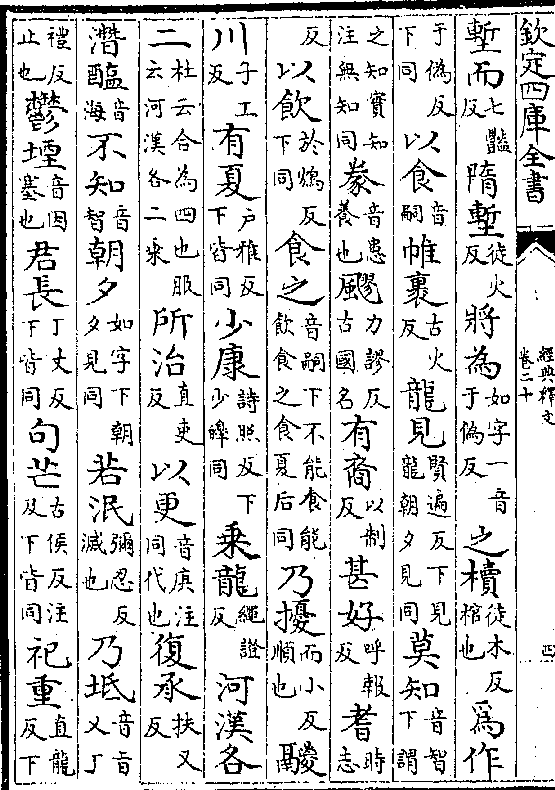 欽定四庫全書
經典釋文
卷二十
四
塹而七豔反隋塹徒火反將為如字一音于偽反之櫝徒木反棺也爲作
于偽反下同以食音嗣帷裹古火反龍見賢遍反下見龍朝夕見同莫知音智下謂
之知實知注無知同豢音患養也飂力謬反古國名有裔以制反甚好呼報反耆時志
反以飲於鴆反下同食之音嗣下不能食能飲食之食夏后同乃擾而小反順也鬷
川子工反有夏戶雅反下皆同少康詩照反下少皞同乗龍繩證反河漢各
二杜云合為四也服云河漢各二乗所治直吏反以更音庚注同代也復承扶又反
潛醢音海不知音智朝夕如字下朝夕見同若泯彌忍反滅也乃坻音旨又丁
禮反止也鬱堙音因塞也君長丁丈反下皆同句芒古侯反注及下皆同祀重直龍反下